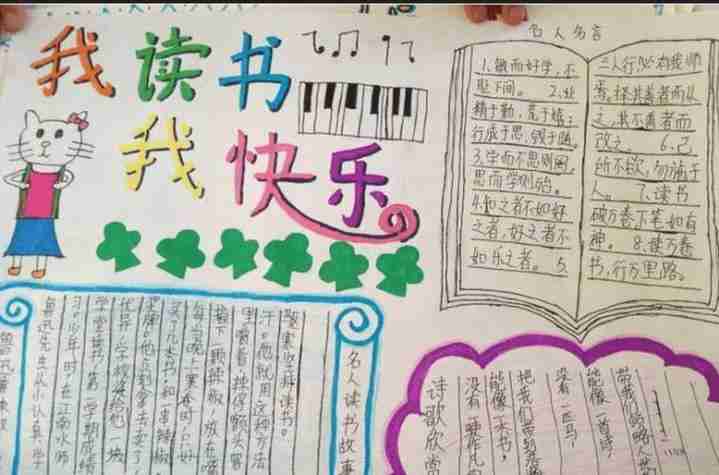 我读书
我快乐
名人名言
1.敏而好学,不
耻下问。 2.业
精于勤,荒于嬉;
行成于思,毁于随。
3.学而不思则罔,
思而学则殆。
4.知之者不如好
之者,好之者不
如乐之者。 5.
三人行,必有我师
焉。择其善者而从
之,其不善者而
改之。 6.己
所不欲,勿施于
人。 7.读书
破万卷下笔如有
神。 8.读万卷
书,行万里路。
名人读书故事
鲁迅先生从小认真学
习。少年时,在江南水师
学堂读书,第一学期成绩
优异,学校奖给他一块
奖牌,他立刻拿去卖了,
买了几本书,和一串辣椒
每当晚上寒夜时,他
摘下一颗辣椒,放在嘴
里嚼着,
汗。他就用这种方法
驱寒坚持读书。
诗歌欣赏
没有
能像一本书,
把我们带到
没有一匹马,
能像一首诗,
带我们领略人